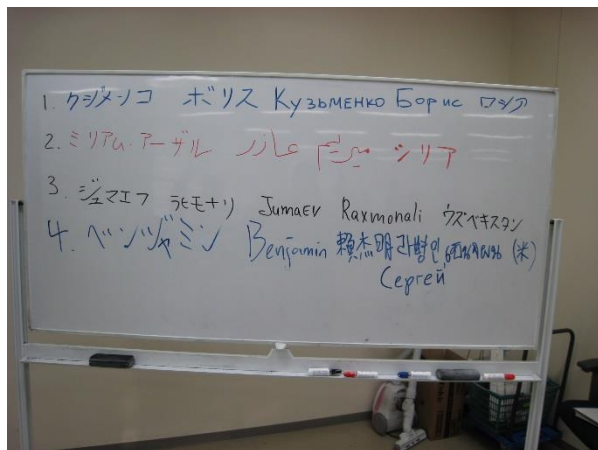 1. クジメンコ ボリス Кузьменко Борис ロシア
2. ミリアム・アーザル مريم عازر シリア
3. ジュマエフ ラヒモナリ Jumaev Raxmonali ウズベキスタン
4. ベンジャミン Benjamin 賴杰明 라병인 (米)
Сергей